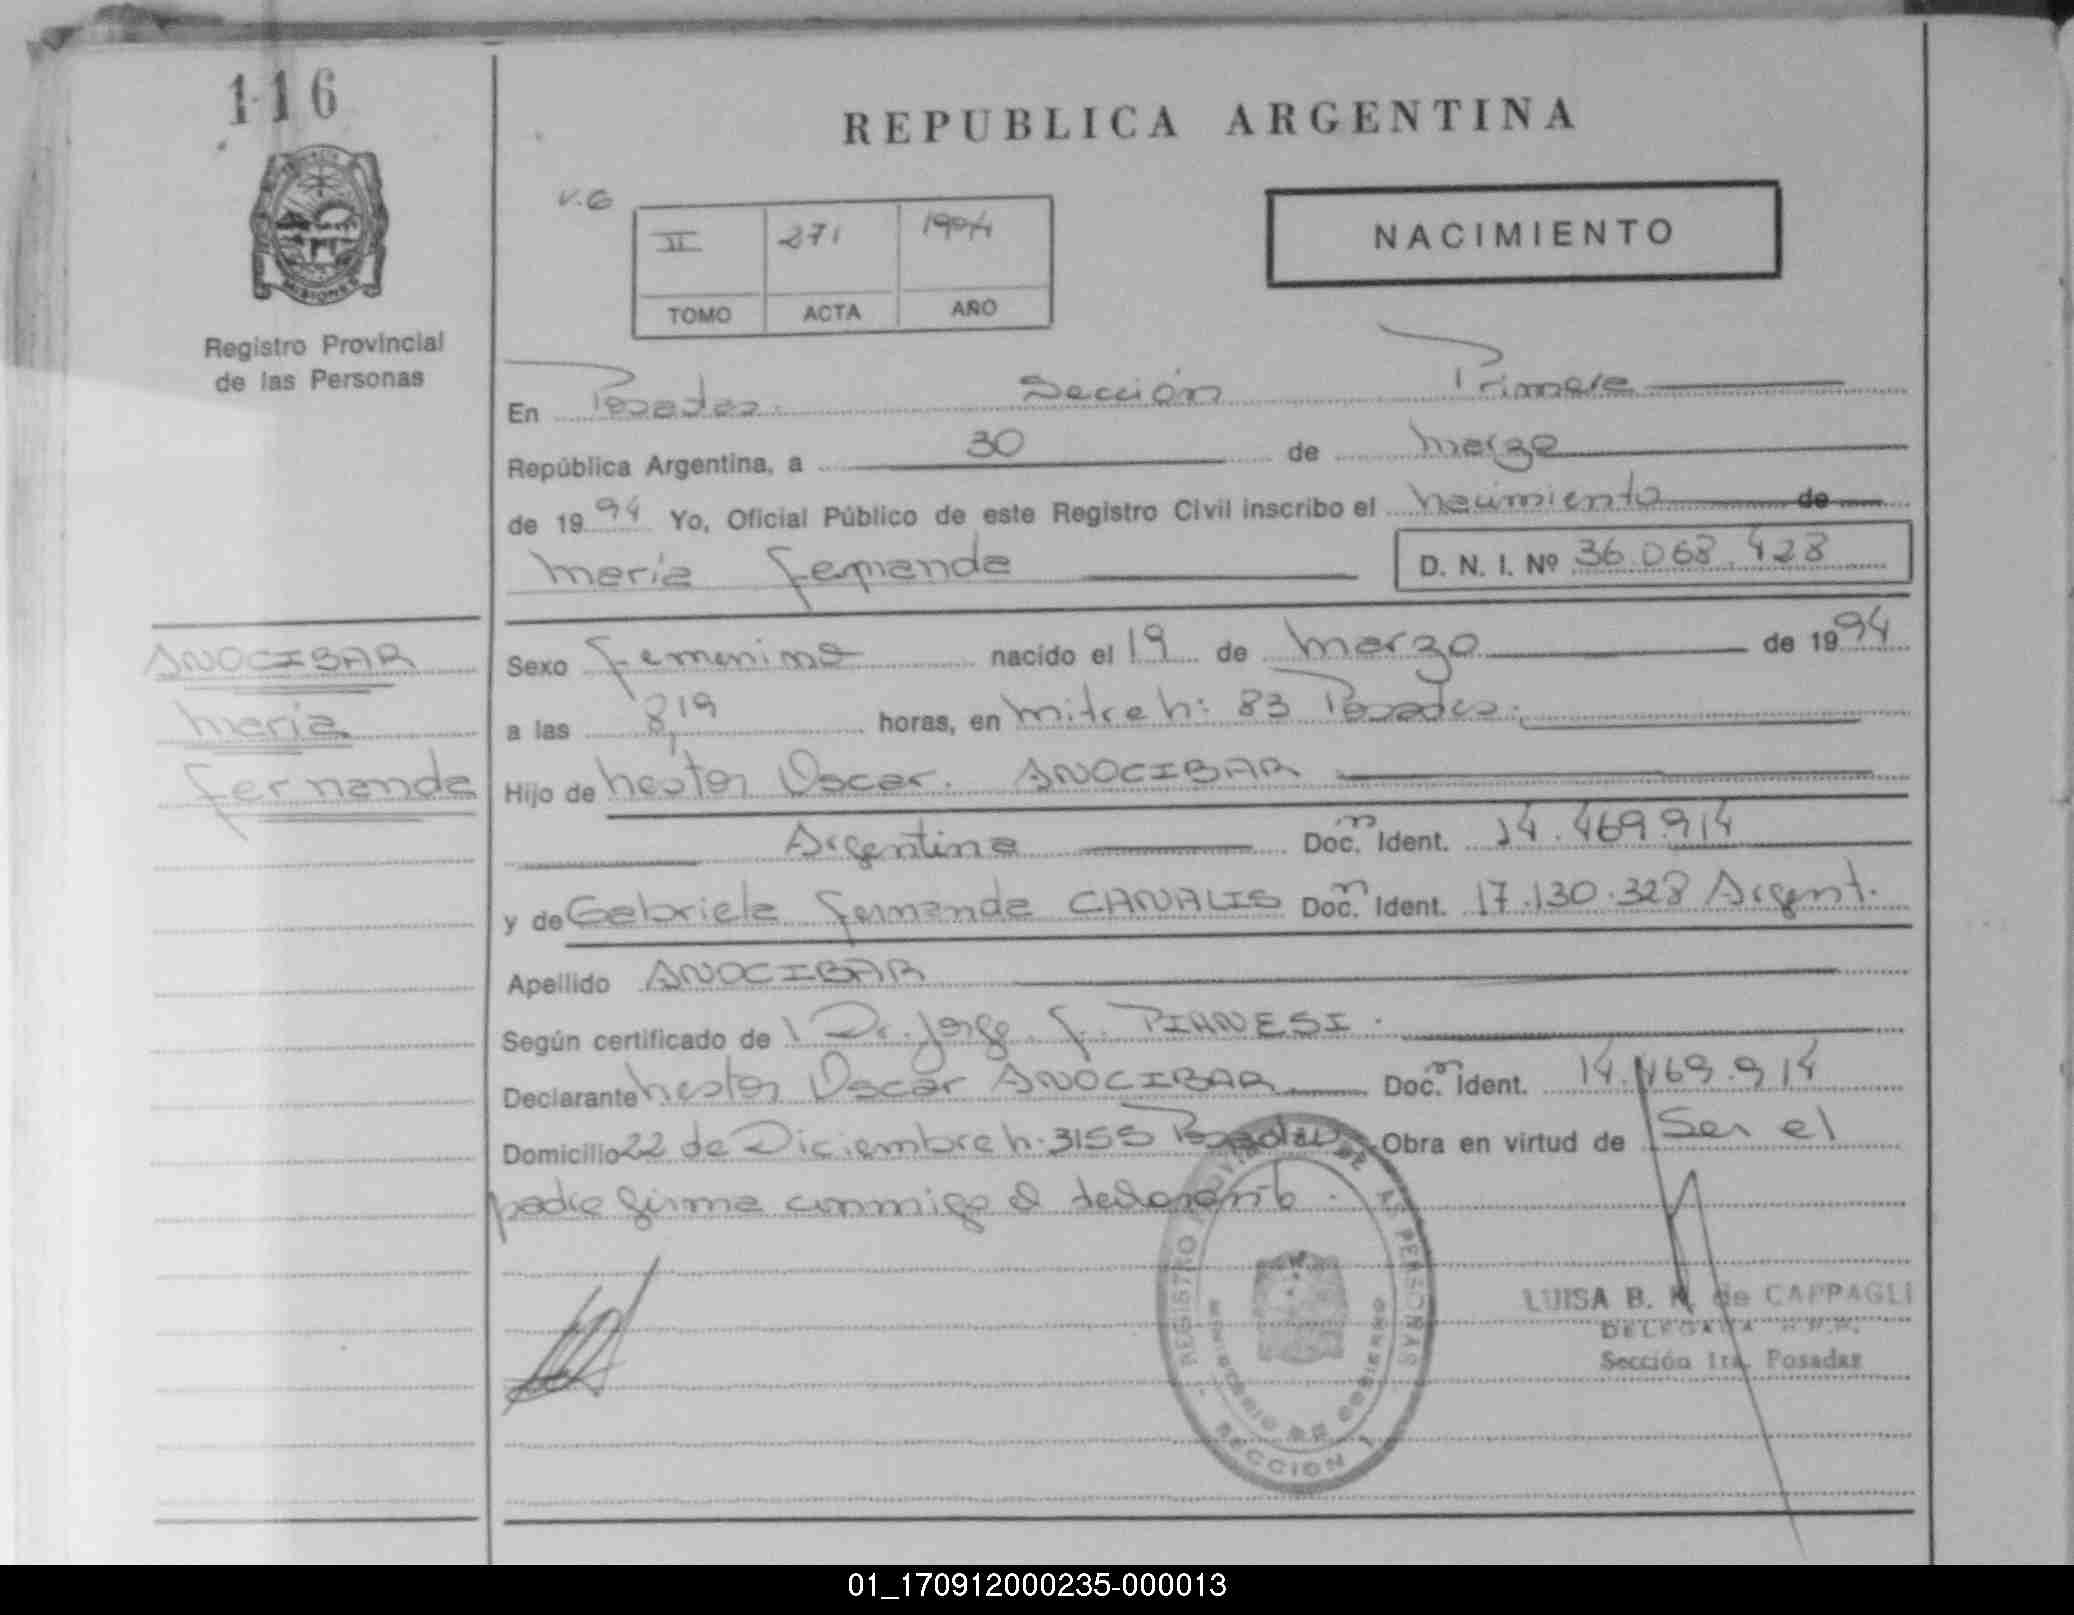 116
REPUBLICA ARGENTINA
V.6
NACIMIENTO
II 271 1994
TOMO ACTA AÑO
MISIONES
Registro Provincial
de las Personas
En Posadas. Sección Primera
República Argentina, a 30 de marzo
de 1994 Yo, Oficial Público de este Registro Civil inscribo el nacimiento de
María Fernanda D. N. I. Nº 36.068.428
ANOCIBAR
María
Fernanda
Sexo femenino nacido el 19 de Marzo de 1994
a las 8,19 horas, en Mitre n: 83 Posadas.
Hijo de Nestor Oscar. ANOCIBAR
Argentina Doc. Ident. 14.469.914
y de Gabriela Fernanda CANALIS Doc. Ident. 17.130.328 Argent.
Apellido ANOCIBAR
Según certificado de Dr. Jorge F. PIANESI.
Declarante Nestor Oscar ANOCIBAR Doc. Ident. 14.469.914
Domicilio 22 de Diciembre n. 3155 Posadas Obra en virtud de Ser el
padre firma conmigo el declarante.
REGISTRO PROVINCIAL DE LAS PERSONAS
MINISTERIO DE GOBIERNO
SECCION 1
LUISA B. K. de CAPPAGLI
DELEGADA R.P.P.
Sección 1ra. Posadas
01_170912000235-000013